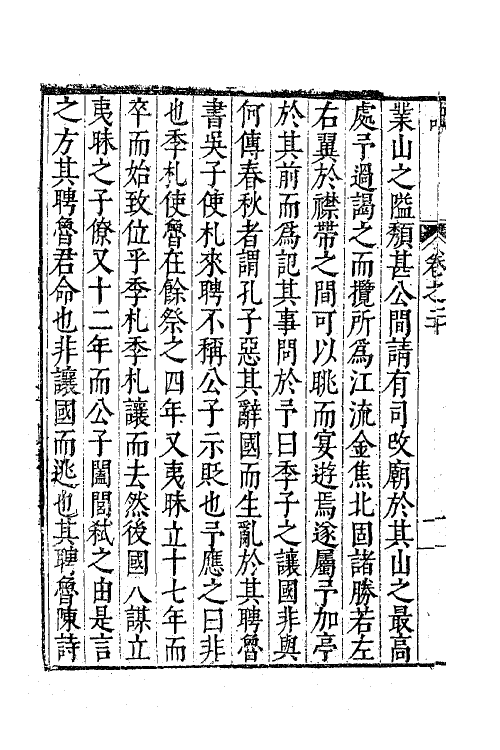 卷之二十
業山之隘頽甚公間請有司改廟於其山之最高
處予過謁之而攬所爲江流金焦北固諸勝若左
右翼於襟帶之間可以眺而宴遊焉遂屬予加亭
於其前而爲記其事問於予曰季子之讓國非與
何傳春秋者謂孔子惡其辭國而生亂於其聘魯
書吳子使札來聘不稱公子示貶也予應之曰非
也季札使魯在餘祭之四年又夷昧立十七年而
卒而始致位乎季札季札讓而去然後國人謀立
夷昧之子僚又十二年而公子闔閭弒之由是言
之方其聘魯君命也非讓國而逃也其聘魯陳詩